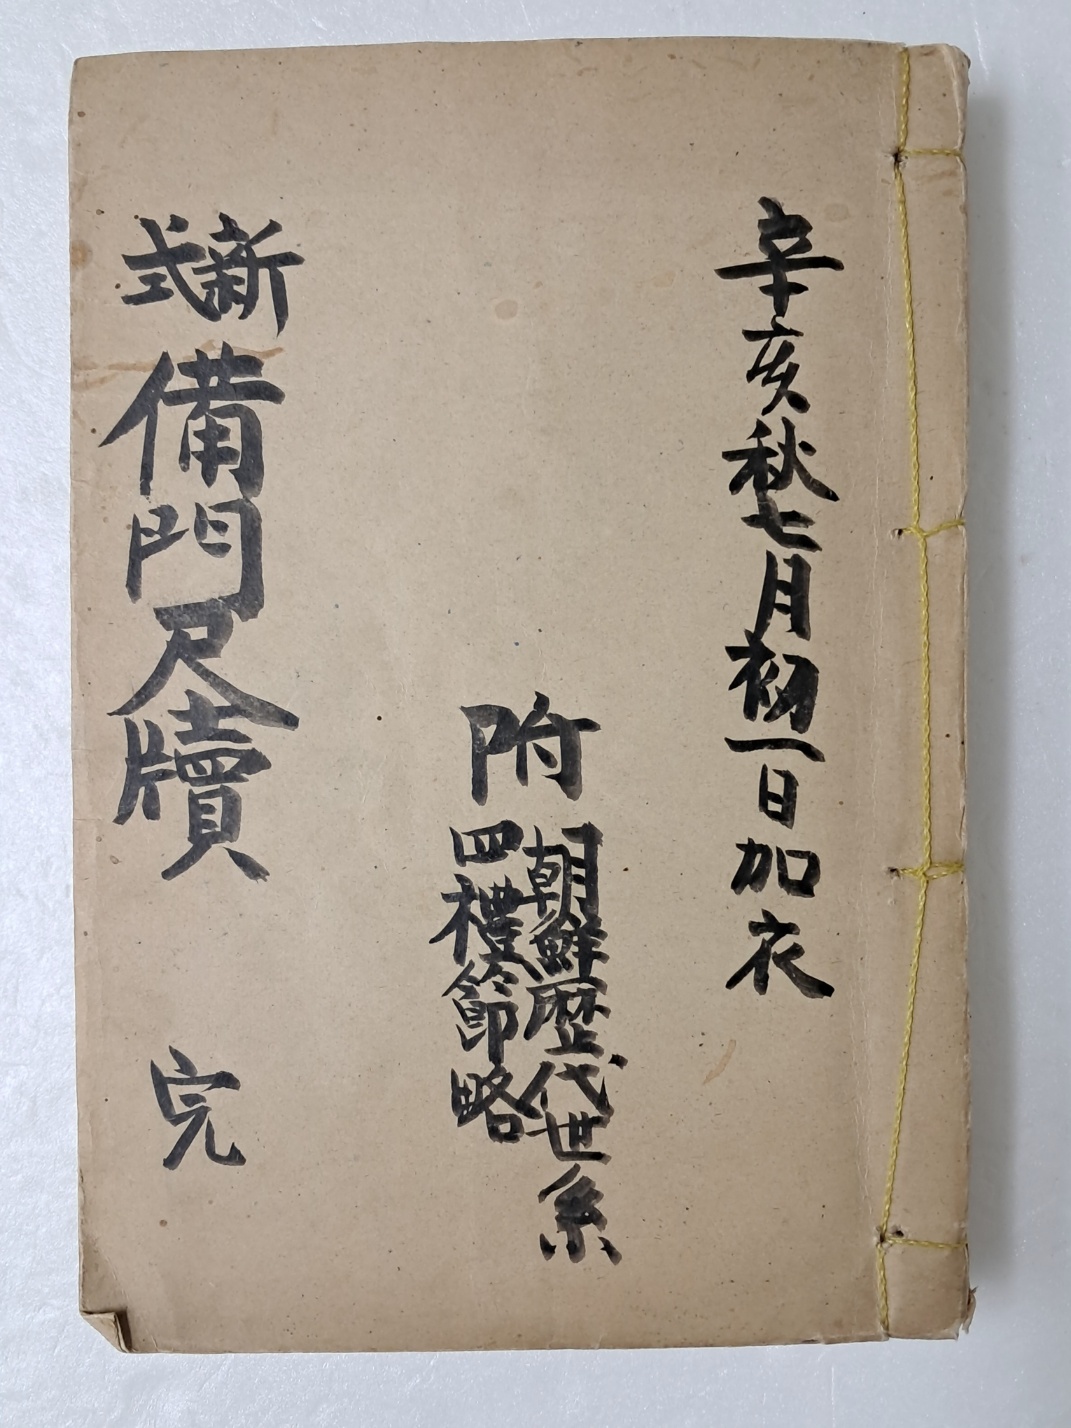 辛亥秋七月初一日加衣
附
朝鮮歷代世系
四禮節略
新式
備門尺牘
完